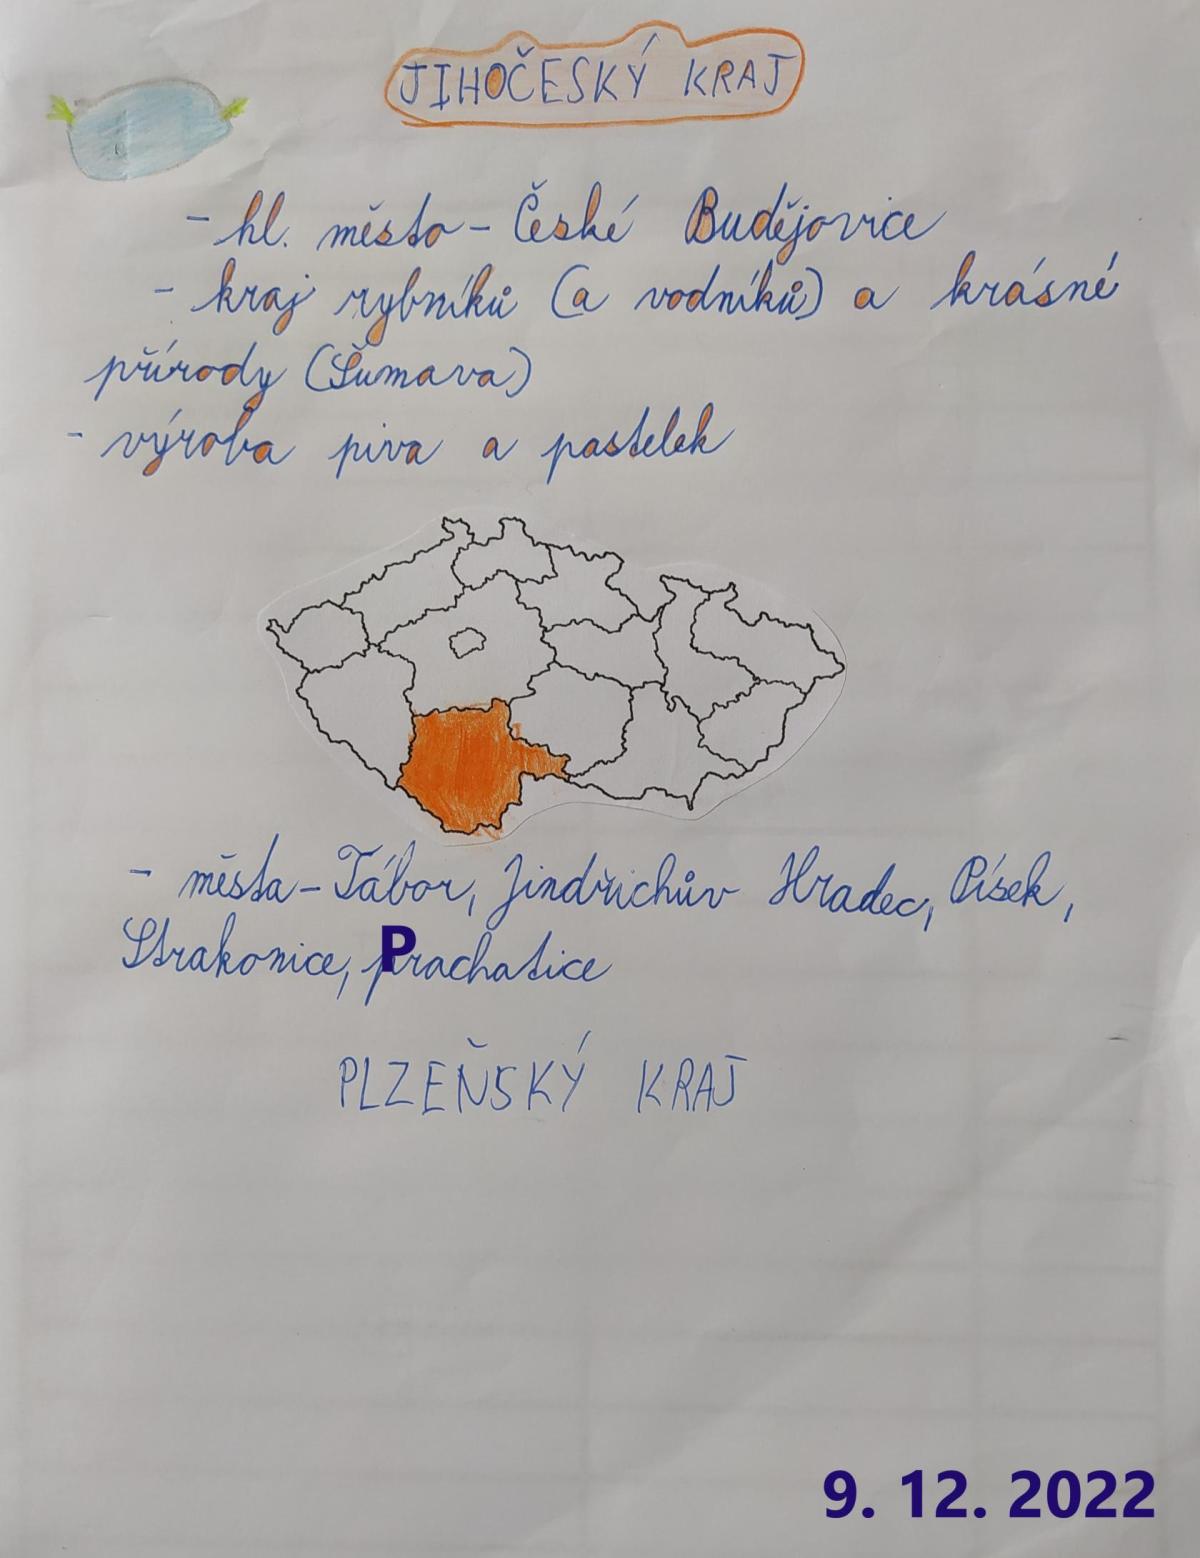 JIHOČESKÝ KRAJ
- hl. město - České Budějovice
- kraj rybníků (a vodníků) a krásné
přírody (Šumava)
- výroba piva a pastelek
- města - Tábor, Jindřichův Hradec, Písek,
Strakonice, Prachatice
PLZEŇSKÝ KRAJ
9. 12. 2022